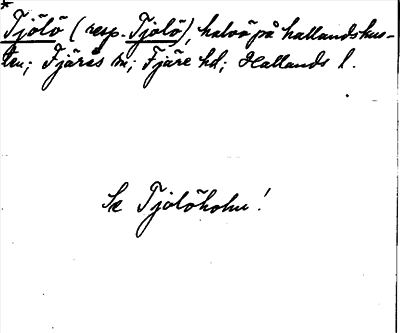 *
Tjölö (resp. Tjolö), halvö på hallandskus-
ten; Fjärås sn; Fjäre hd; Hallands l.
Se Tjolöholm!